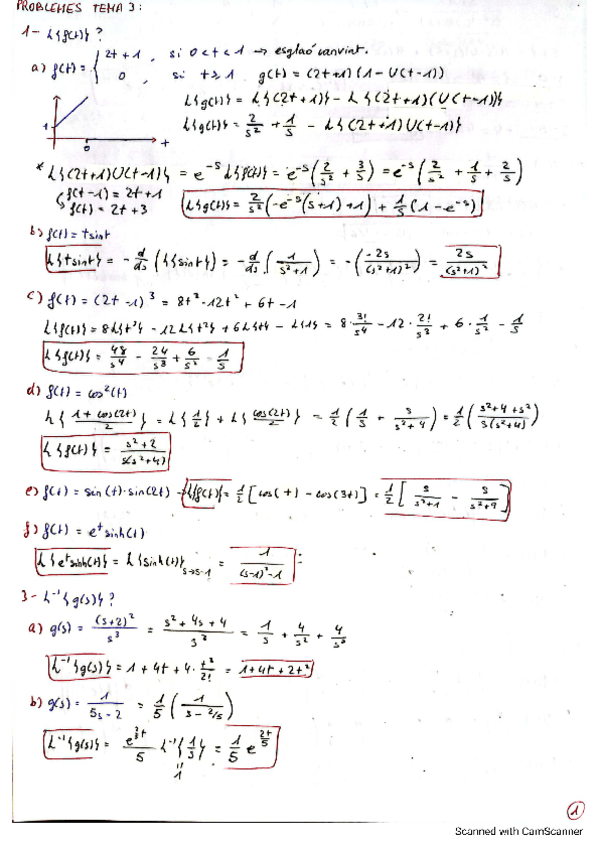 PROBLEMES TEMA 3:
1- L{f(t)} ?
a) f(t) = { 2t+1, si 0<t<1 → esglaó canviat.
0, si t≥1 g(t) = (2t+1)(1-U(t-1))
L{g(t)} = L{(2t+1)} - L{(2t+1)(U(t-1))}
L{g(t)} = 2/s² + 1/s - L{(2t+1)U(t-1)}
1
0 t
* L{(2t+1)U(t-1)} = e^-s L{f(t)} = e^-s (2/s² + 3/s) = e^-s (2/s² + 1/s + 2/s)
f(t-1) = 2t+1
f(t) = 2t+3 L{g(t)} = 2/s² (-e^-s(s+1)+1) + 1/s (1-e^-s)
b) f(t) = tsint
L{tsint} = - d/ds (L{sint}) = - d/ds (1/(s²+1)) = -(-2s/(s²+1)²) = 2s/(s²+1)²
c) f(t) = (2t-1)³ = 8t³-12t²+6t-1
L{f(t)} = 8L{t³} - 12L{t²} + 6L{t} - L{1} = 8·3!/s⁴ - 12·2!/s³ + 6·1/s² - 1/s
L{f(t)} = 48/s⁴ - 24/s³ + 6/s² - 1/s
d) f(t) = cos²(t)
L{(1+cos(2t))/2} = L{1/2} + L{cos(2t)/2} = 1/2 (1/s + s/(s²+4)) = 1/2 ((s²+4+s²)/(s(s²+4)))
L{f(t)} = (s²+2)/(s(s²+4))
e) f(t) = sin(t)·sin(2t) → L{f(t)} = 1/2 [cos(t) - cos(3t)] = 1/2 [s/(s²+1) - s/(s²+9)]
f) f(t) = e^t sinh(t)
L{e^t sinh(t)} = L{sinh(t)} s→s-1 = 1/((s-1)²-1)
3- L⁻¹{g(s)} ?
a) g(s) = (s+2)²/s³ = (s²+4s+4)/s³ = 1/s + 4/s² + 4/s³
L⁻¹{g(s)} = 1+4t+4·t²/2! = 1+4t+2t²
b) g(s) = 1/(5s-2) = 1/5 (1/(s-2/5))
L⁻¹{g(s)} = e^(2/5 t)/5 L⁻¹{1/s} = 1/5 e^(2t/5)
"
1
1
Scanned with CamScanner